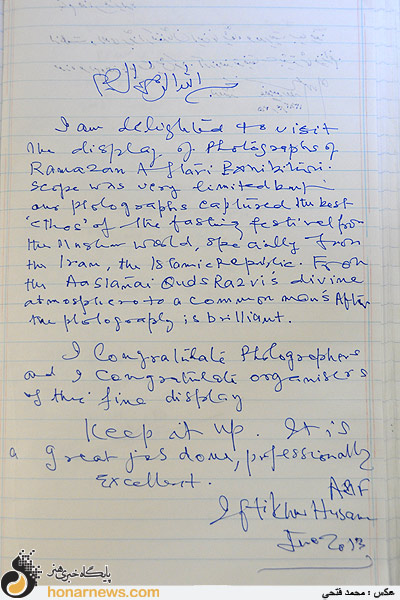 بسم الله الرحمن الرحیم
I am delighted to visit
the display of Photographs of
Ramazan Aftari Exhibition.
Scope was very limited but
our photographs captured the best
'ethos' of the fasting festivel from
the Muslim world, specially from
the Iran, the Islamic Republic. From
the Aastanai Quds Razvi's divine
atmosphere to a common man's Aftar
the photography is brilliant.
I Congratulate Photographers
and I congratulate organisers
of this fine display
Keep it up. It is
a great job done, professionally
excellent.
Iftikhar Husain
2013
پایگاه خبری هنر
honarnews.com
عکس : محمد فتحی